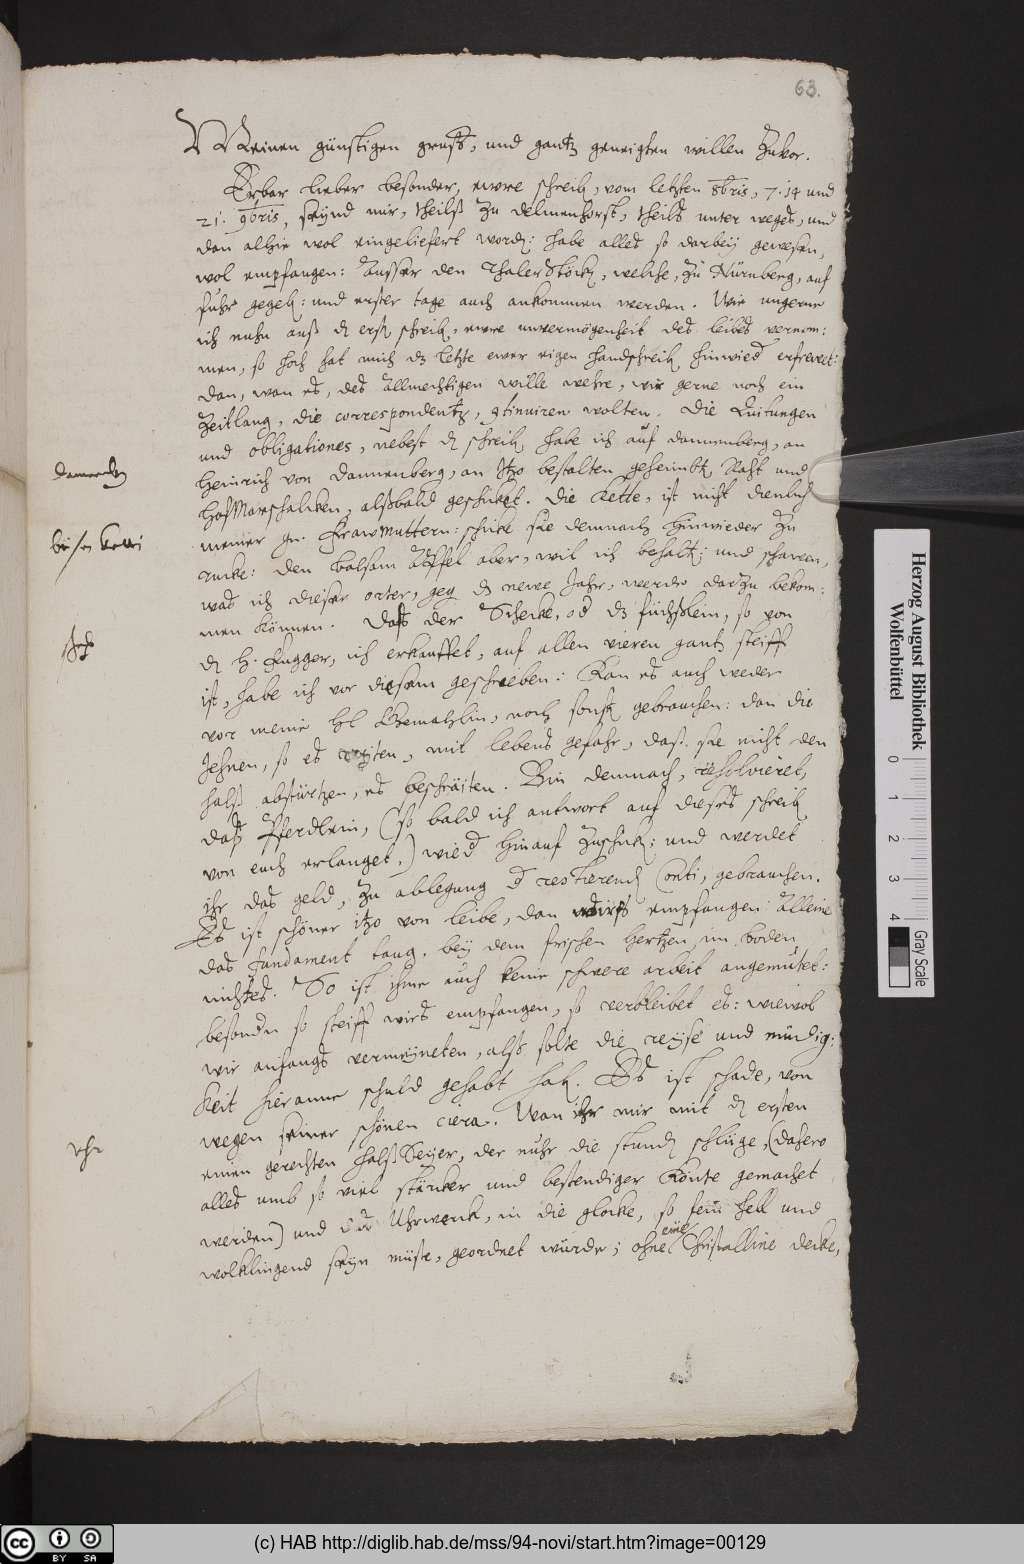 63.
Meinen günstigen gruß, und gantz geneigten willen zuvor.
Erbar lieber besonder, ewre schreib, vom letzten 8bris, 7. 14 und
21. 9bris, seynd mir, theilß zu delmenhorst, theilß unter weges, und
dan alhie wol eingeliefert word: habe alles so darbey gewesen,
wol empfangen: Ausser den Thaler Stöck, welche, zu Nürnberg, auf
fuhr gegeb: und erster tage auch ankommen werden. Wie ungerne
ich nuhn auß d erst schreib, ewre unvermögenheit des leibes vernom:
men, so hoch hat mich dz letzte ewer eigen handschreib hinwied erfrewet:
dan, wan es, des Allmechtigen wille wehre, wir gerne noch ein
Zeitlang, die correspondentz, 9tinuiren wolten. Die Quitungen
und obligationes, nebest d schreib, habe ich auf dannenberg, an
Heinrich von Dannenberg, an Itzo bestalten geheimbt, Raht und
HofMarschalcken, alßbald geschicket. Die Kette, ist nicht dienlich
meiner gn. FrawMuttern: schicke sie demnach hinwieder zu
rucke: Den Balsam Apffel aber, wil ich behalt: und schawen,
was ich dieser orter, geg dz newe Jahr, werde darzu bekom:
men können. Daß der Schecke, od dz füchßlein, so von
d H. Fugger, ich erkauffet, auf allen vieren gantz steiff
ist, habe ich vor diesem geschrieben: Kan es auch weder
vor meine Hl Gemahlin, noch sonst gebrauchen: dan die
Jehnen, so es reyten, mit lebens gefahr, daß sie nicht den
halß abstürtzen, es beschreiten. Bin demnach, resolvieret,
daß Pferdlein, (so bald ich antwort auf dieses schreib,
von euch erlanget,) wied hinauf zuschick: und werdet
ihr das geld, zu ablegung d restierend Conti, gebrauchen.
Es ist schöner itzo von leibe, dan wirs empfangen: Alleine
das fundament taug, bey dem frischen hertzen, im boden
nichtes. So ist ihme auch keine schwere arbeit angemutet:
besondn so steiff wirs empfangen, so verbleibet es: wiewol
wir anfangs vermeineten, alß solte die reyse und müdig:
keit hieranne schuld gehabt hab. Es ist schade, von
wegen seiner schönen ciera. Wan ihr mir mit d ersten
einen gerechten halß Seyer, der nuhr die stund schlüge, (dahero
alles umb so viel stärcker und bestendiger Könte gemachet
werden) und das Uhrwerck, in die glocke, so fein hell und
wolklingend seyn müste, geordnet würde; ohne eine Christalline decke,
Dannenberg
vhr
Herzog August Bibliothek
Wolfenbüttel
0 1 2 3 4
Gray Scale
CC BY SA
(c) HAB http://diglib.hab.de/mss/94-novi/start.htm?image=00129